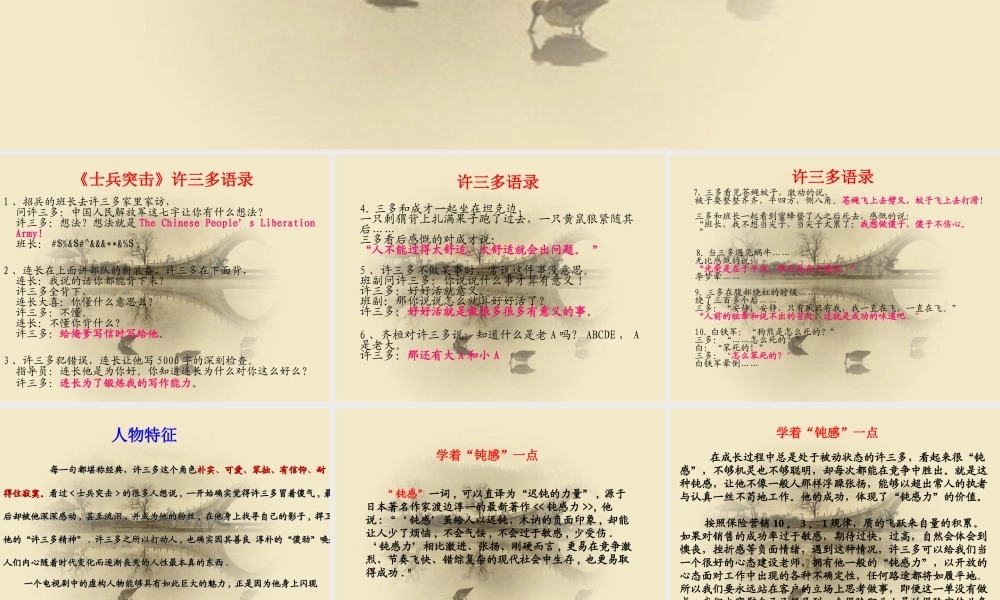 《士兵突击》许三多语录
1、招兵的班长去许三多家里家访,
问许三多：中国人民解放军这七字让你有什么想法?
许三多：想法？想法就是 The Chinese People’s Liberation
Army！
班长： #$%&$#^&&&**&%$
2、连长在上面讲部队的新装备。许三多在下面背，
连长：我说的话你都能背下来？
许三多全背下,
连长大喜：你懂什么意思么？
许三多：不懂。
连长：不懂你背什么？
许三多：给俺爹写信时写给他。
3、许三多犯错误，连长让他写 5000 字的深刻检查。
指导员：连长他是为你好，你知道连长为什么对你这么好么？
许三多：连长为了锻炼我的写作能力。
许三多语录
4. 三多和成才一起坐在坦克边，
一只刺猬背上扎满果子跑了过去，一只黄鼠狼紧随其
后……
三多看后感慨的对成才说：
“人不能过得太舒适，太舒适就会出问题。 ”
5 、许三多不做某事时，常说这件事没意思，
班副问许三多：你说说什么事才算有意义！
许三多：好好活就意义。
班副：那你说说怎么就算好好活了?
许三多：好好活就是做很多很多有意义的事。
6、齐桓对许三多说：知道什么是老 A 吗？ ABCDE ， A
是老大。
许三多：那还有大 A 和小 A
许三多语录
7. 三多看见苍蝇蚊子，激动的说。
被子要整整齐齐，平四方，侧八角。苍蝇飞上去劈叉，蚊子飞上去打滑！
三多和班长一起看到蜜蜂蛰了人之后死去，感慨的说：
“班长，我不想当尖子，当尖子太累了；我想做傻子，傻子不伤心。
”
8. 当三多遇见蜗牛……
无比感慨的说：
李梦晕……
9. 三多在腹部绕杠的时候……
绕了三百多个后……
三多：“安静，安静，只有风只有我，我一直在飞，一直在飞。”
“人前的眩晕和说不出的苦处，这就是成功的味道吧。”
10. 白铁军：“狗熊是怎么死的？“
三多：“……怎么死的？
白：“笨死的！”
三多：“怎么笨死的？”
白铁军晕倒……
人物特征
每一句都堪称经典，许三多这个角色朴实、可爱、笨拙、有信仰、耐
得住寂寞。看过<士兵突击>的很多人想说，一开始确实觉得许三多冒着傻气，最
后却被他深深感动，甚至流泪，并成为他的粉丝，在他身上找寻自己的影子，捍卫
他的“许三多精神”．许三多之所以打动人，也确实因其善良 淳朴的“傻劲”唤起
人们内心随着时代变化而逐渐丧失的人性最本真的东西．
一个电视剧中的虚构人物能够具有如此巨大的魅力，正是因为他身上闪现
学着“钝感”一点
“钝感”一词，可以直译为“迟钝的力量”，源于
日本著名作家渡边淳一的最新著作 <<钝感力 >>，他
说：“‘钝感’虽给人以迟钝、木讷的负面印象，却能
让人少了烦恼，不会气馁，不会过于敏感，少受伤．
‘钝感力’相比激进、张扬、刚硬而言，更易在竞争激
烈、节奏飞快、错综复杂的现代社会中生存，也更易取
得成功．"
学着“钝感”一点
在成长过程中总是处于被动状态的许三多，看起来很“钝
感”，不够机灵也不够聪明，却每次都能在竞争中胜出。就是这
种钝感，让他不像一般人那样浮躁张扬，能够以超出常人的执者
与认真一丝不苟地工作。他的成功，体现了“钝感力”的价值．
按照保险营销 10 ， 3 ， 1 规律，质的飞跃来自量的积累。
如果对销售的成功率过于敏感，期待过快，过高，自然会体会到
懊丧，挫折感等负面情绪，遇到这种情况，许三多可以给我们当
一个很好的心态建设老师，拥有他一般的“钝感力”，以开放的
心态面对工作中出现的各种不确定性，任何路途都将如履平地．
所以我们要永远站在客户的立场上思考做事，即使这一单没有做